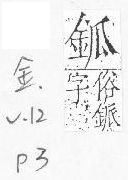 鈲
俗
字
金.
V.12
p3